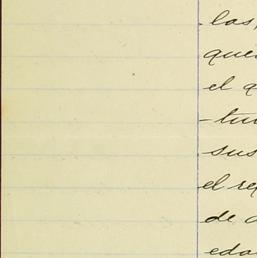 las,
que
el
-tu
sus
el re
de
eda